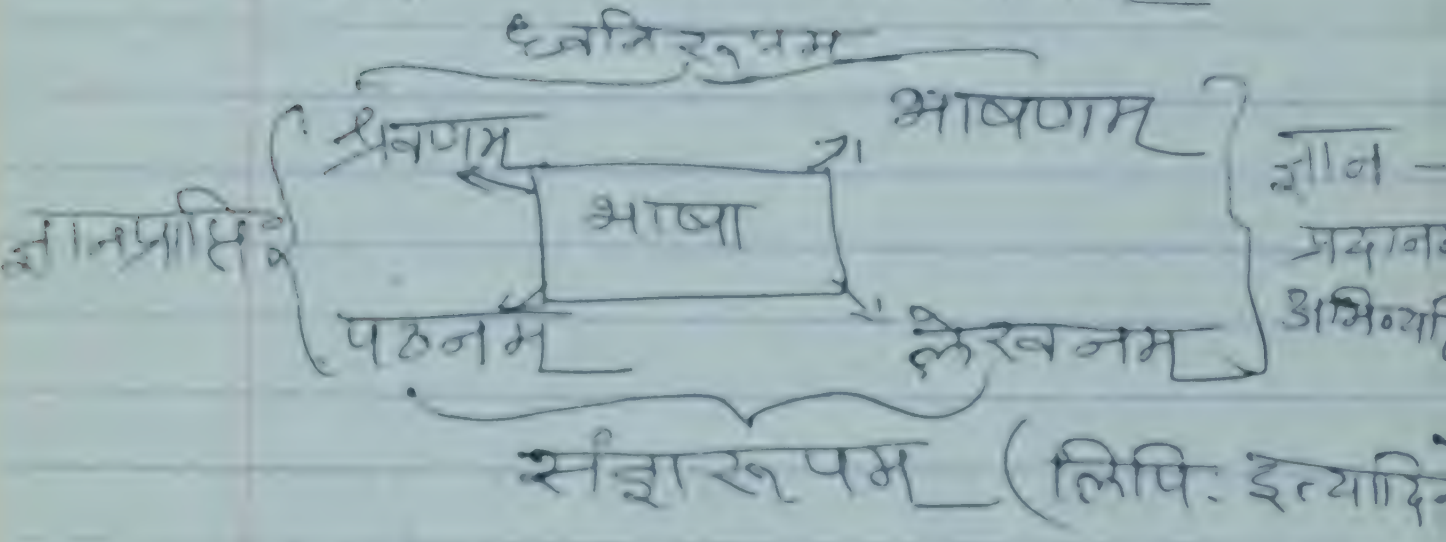 ध्वनिरूपम
श्रवणम् भाषणम्
ज्ञान -
भाषा
ज्ञानप्राप्तिः
प्रदान
पठनम् लेखनम्
संज्ञारूपम् (लिपिः इत्यादि